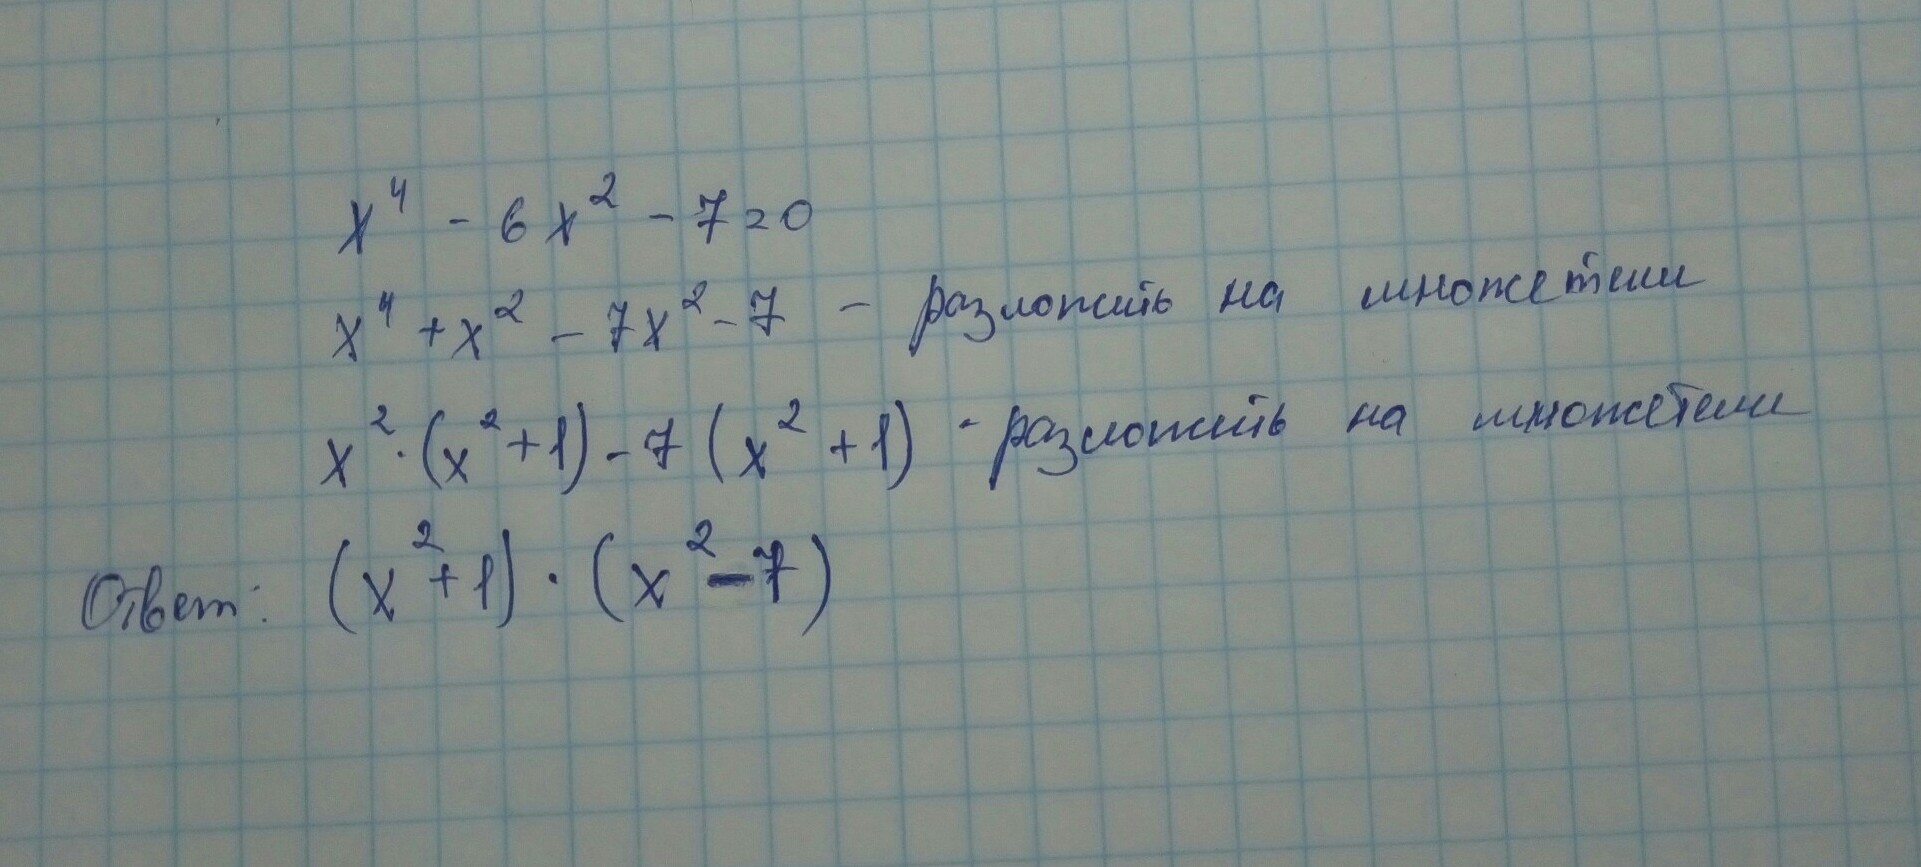 x⁴ - 6x² - 7 = 0
x⁴ + x² - 7x² - 7 - разложить на множетели
x² · (x² + 1) - 7 (x² + 1) - разложить на множетели
Ответ: (x² + 1) · (x² - 7)